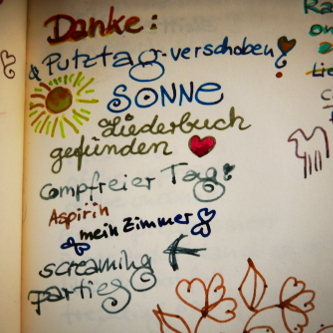 Danke:
Putztag verschoben!
SONNE
Liederbuch
gefunden
compfreier Tag!
Aspirin
mein Zimmer
screaming
parties